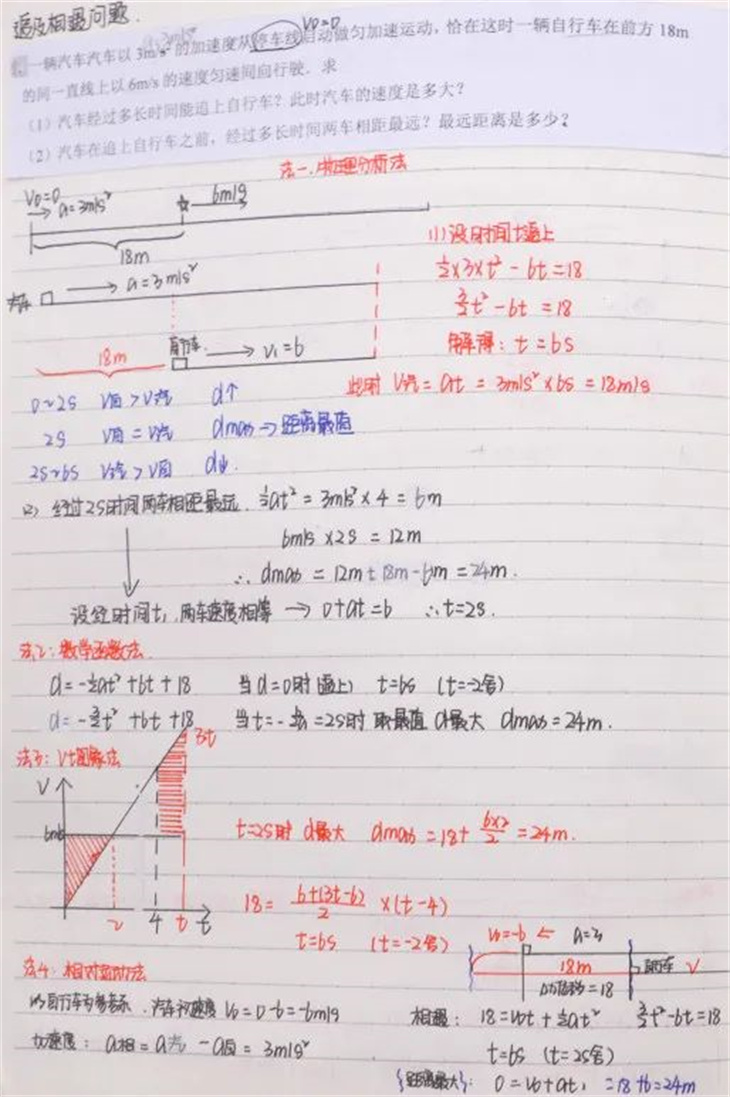 追及相遇问题.
V0=0
一辆汽车汽车以 3m/s² 的加速度从停车线启动做匀加速运动，恰在这时一辆自行车在前方 18m
的同一直线上以 6m/s 的速度匀速同向行驶. 求
（1）汽车经过多长时间能追上自行车？此时汽车的速度是多大？
（2）汽车在追上自行车之前，经过多长时间两车相距最远？最远距离是多少？
法一.物理分析法
V0=0 a=3m/s² 6m/s
18m
(1) 设时间t追上
½×3×t² - 6t = 18
a=3m/s²
汽车
3/2t² - 6t = 18
解得: t=6s
自行车 V1=6
18m
此时 V汽 = at = 3m/s²×6s = 18m/s
0~2s V自>V汽 d↑
2s V自=V汽 dmax→距离最值
2s~6s V汽>V自 d↓.
(2) 经过2s时间两车相距最远. ½at² = 3m/s²×4 = 6m
6m/s×2s = 12m
∴ dmax = 12m+18m-6m=24m.
设经时间t1, 两车速度相等 → 0+at=6 ∴t=2s.
法2: 数学函数法.
d=-½at²+6t+18 当d=0时(追上) t=6s (t=-2舍)
d=-3/2t²+6t+18 当t=-b/2a=2s时 取最值 d最大 dmax=24m.
法3: Vt图象法
3t
V
6m/s
t=2s时 d最大 dmax=18+6×2/2=24m.
2 4 t t
18= 6+(3t-6)/2 ×(t-4)
t=6s (t=-2舍)
V0=-6 ← a=3
18m 自行车 V
=18
法4: 相对运动法
以自行车为参考系. 汽车初速度 V0=0-6=-6m/s
相遇: 18=V0t+½at² 3/2t²-6t=18
加速度: a相=a汽-a自=3m/s²
t=6s (t=2s舍)
{距离最大}: 0=V0+at1 =18+6=24m